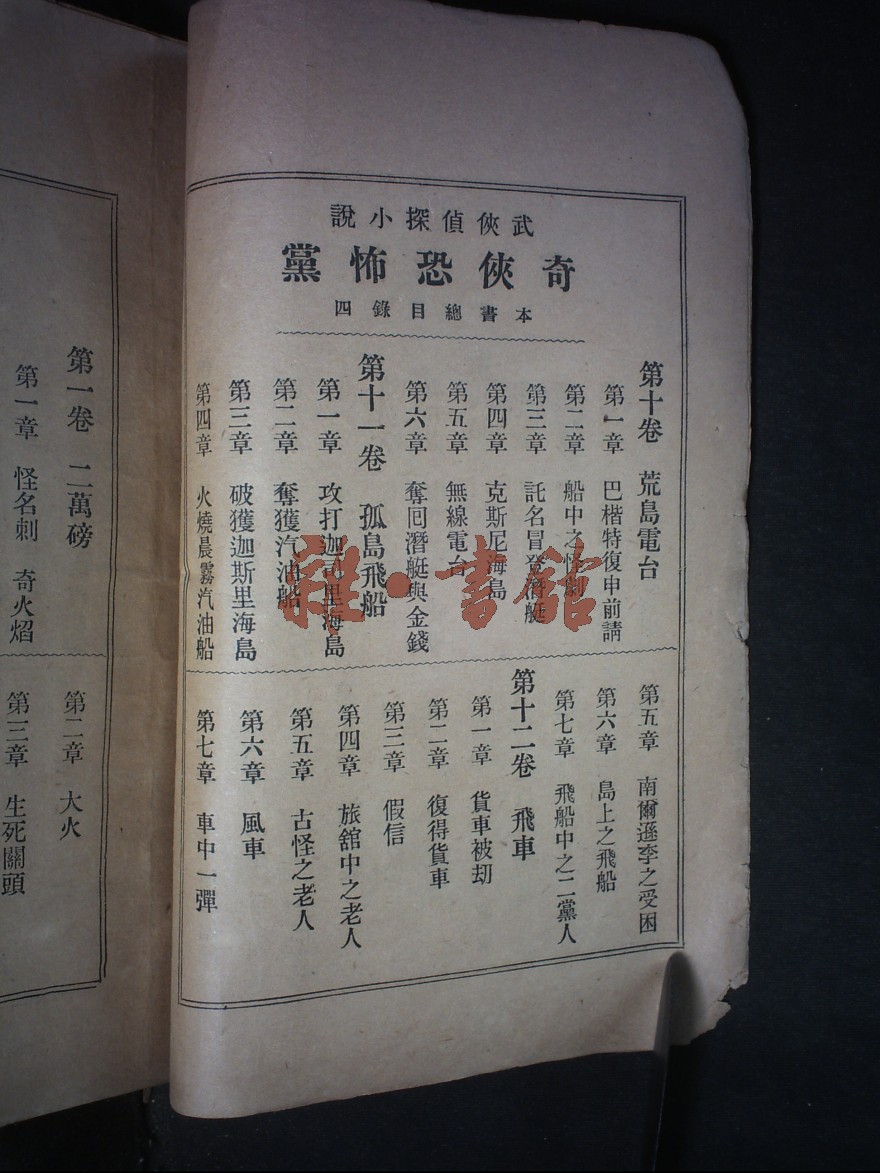 武俠偵探小說
奇俠恐怖黨
本書總目錄四
第十卷 荒島電台
第一章 巴楷特復申前請
第二章 船中之怪劇
第三章 託名冒登潛艇
第四章 克斯尼海島
第五章 無線電台
第六章 奪囘潛艇與金錢
第十一卷 孤島飛船
第一章 攻打迦司里海島
第二章 奪獲汽油船
第三章 破獲迦斯里海島
第四章 火燒晨霧汽油船
第五章 南爾遜李之受困
第六章 島上之飛船
第七章 飛船中之二黨人
第十二卷 飛車
第一章 貨車被刧
第二章 復得貨車
第三章 假信
第四章 旅舘中之老人
第五章 古怪之老人
第六章 風車
第七章 車中一彈
第一卷 二萬磅
第一章 怪名刺 奇火熖
第二章 大火
第三章 生死關頭
雜·書舘